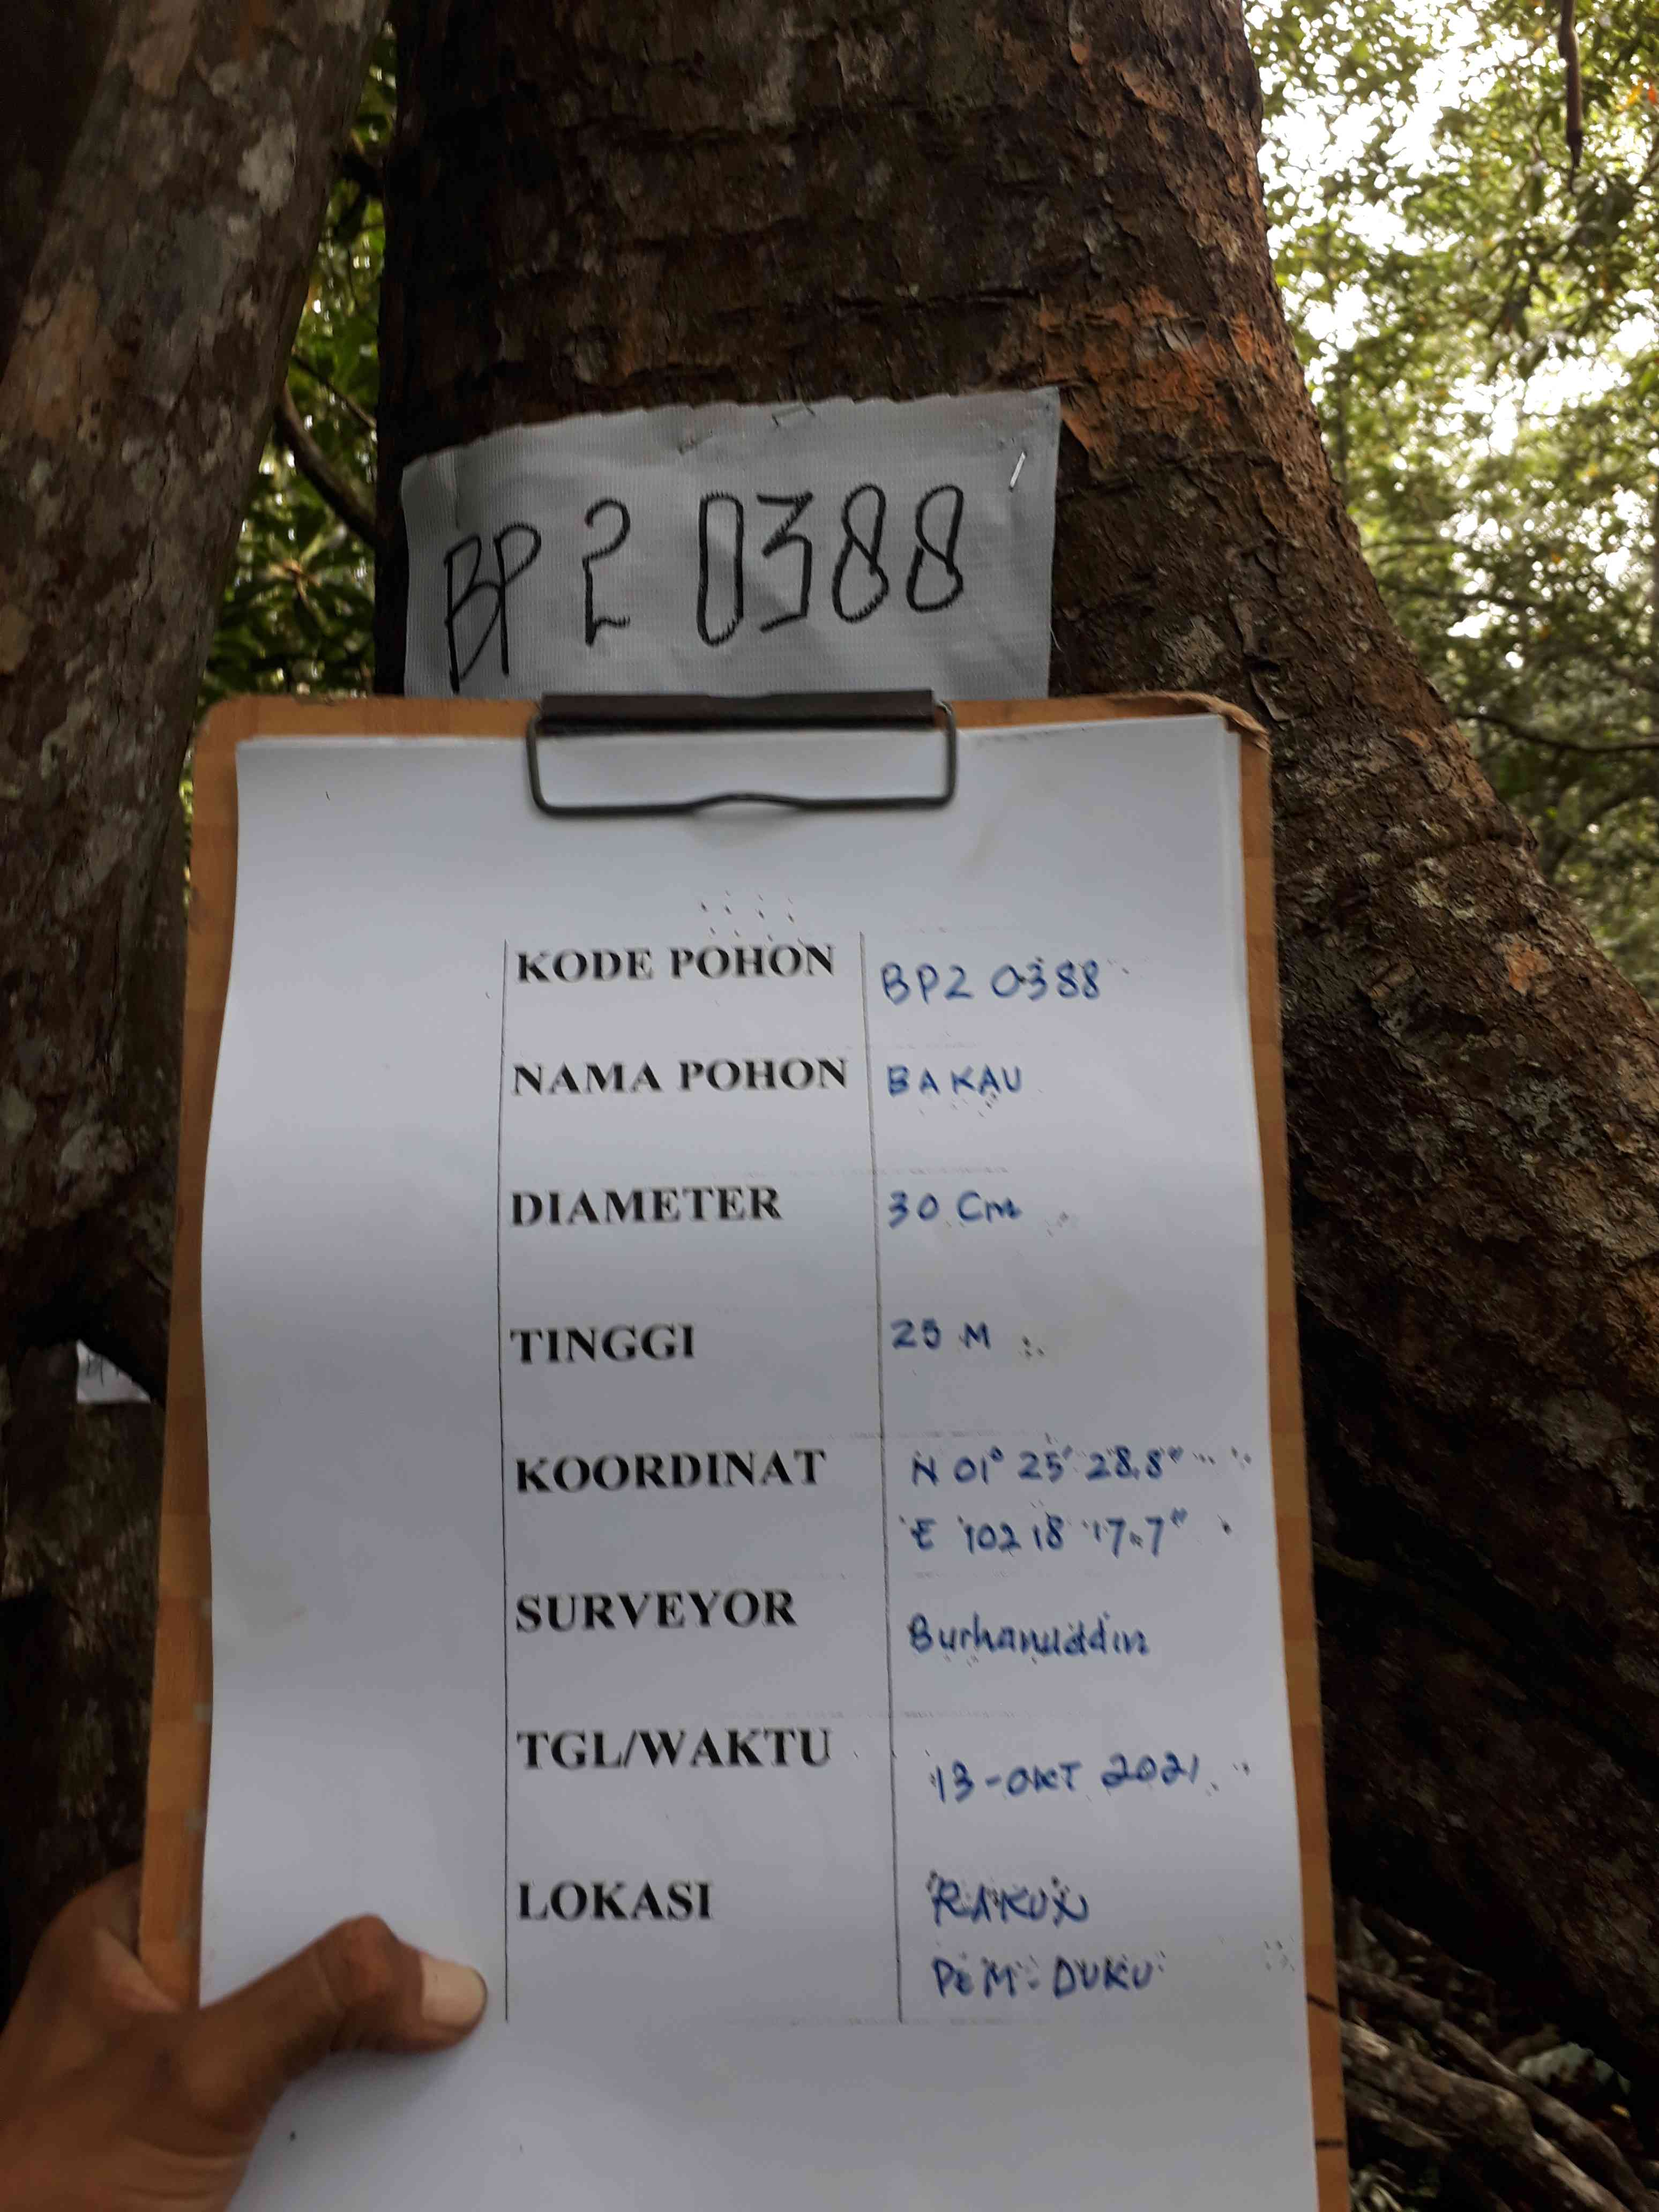 BP 2 0388
KODE POHON BP2 0388
NAMA POHON BAKAU
DIAMETER 30 Cm
TINGGI 25 M
KOORDINAT N 01° 25' 28.8"
E 102 18 17.7"
SURVEYOR Burhanuddin
TGL/WAKTU 13-OKT 2021
LOKASI
PEM. DUKU